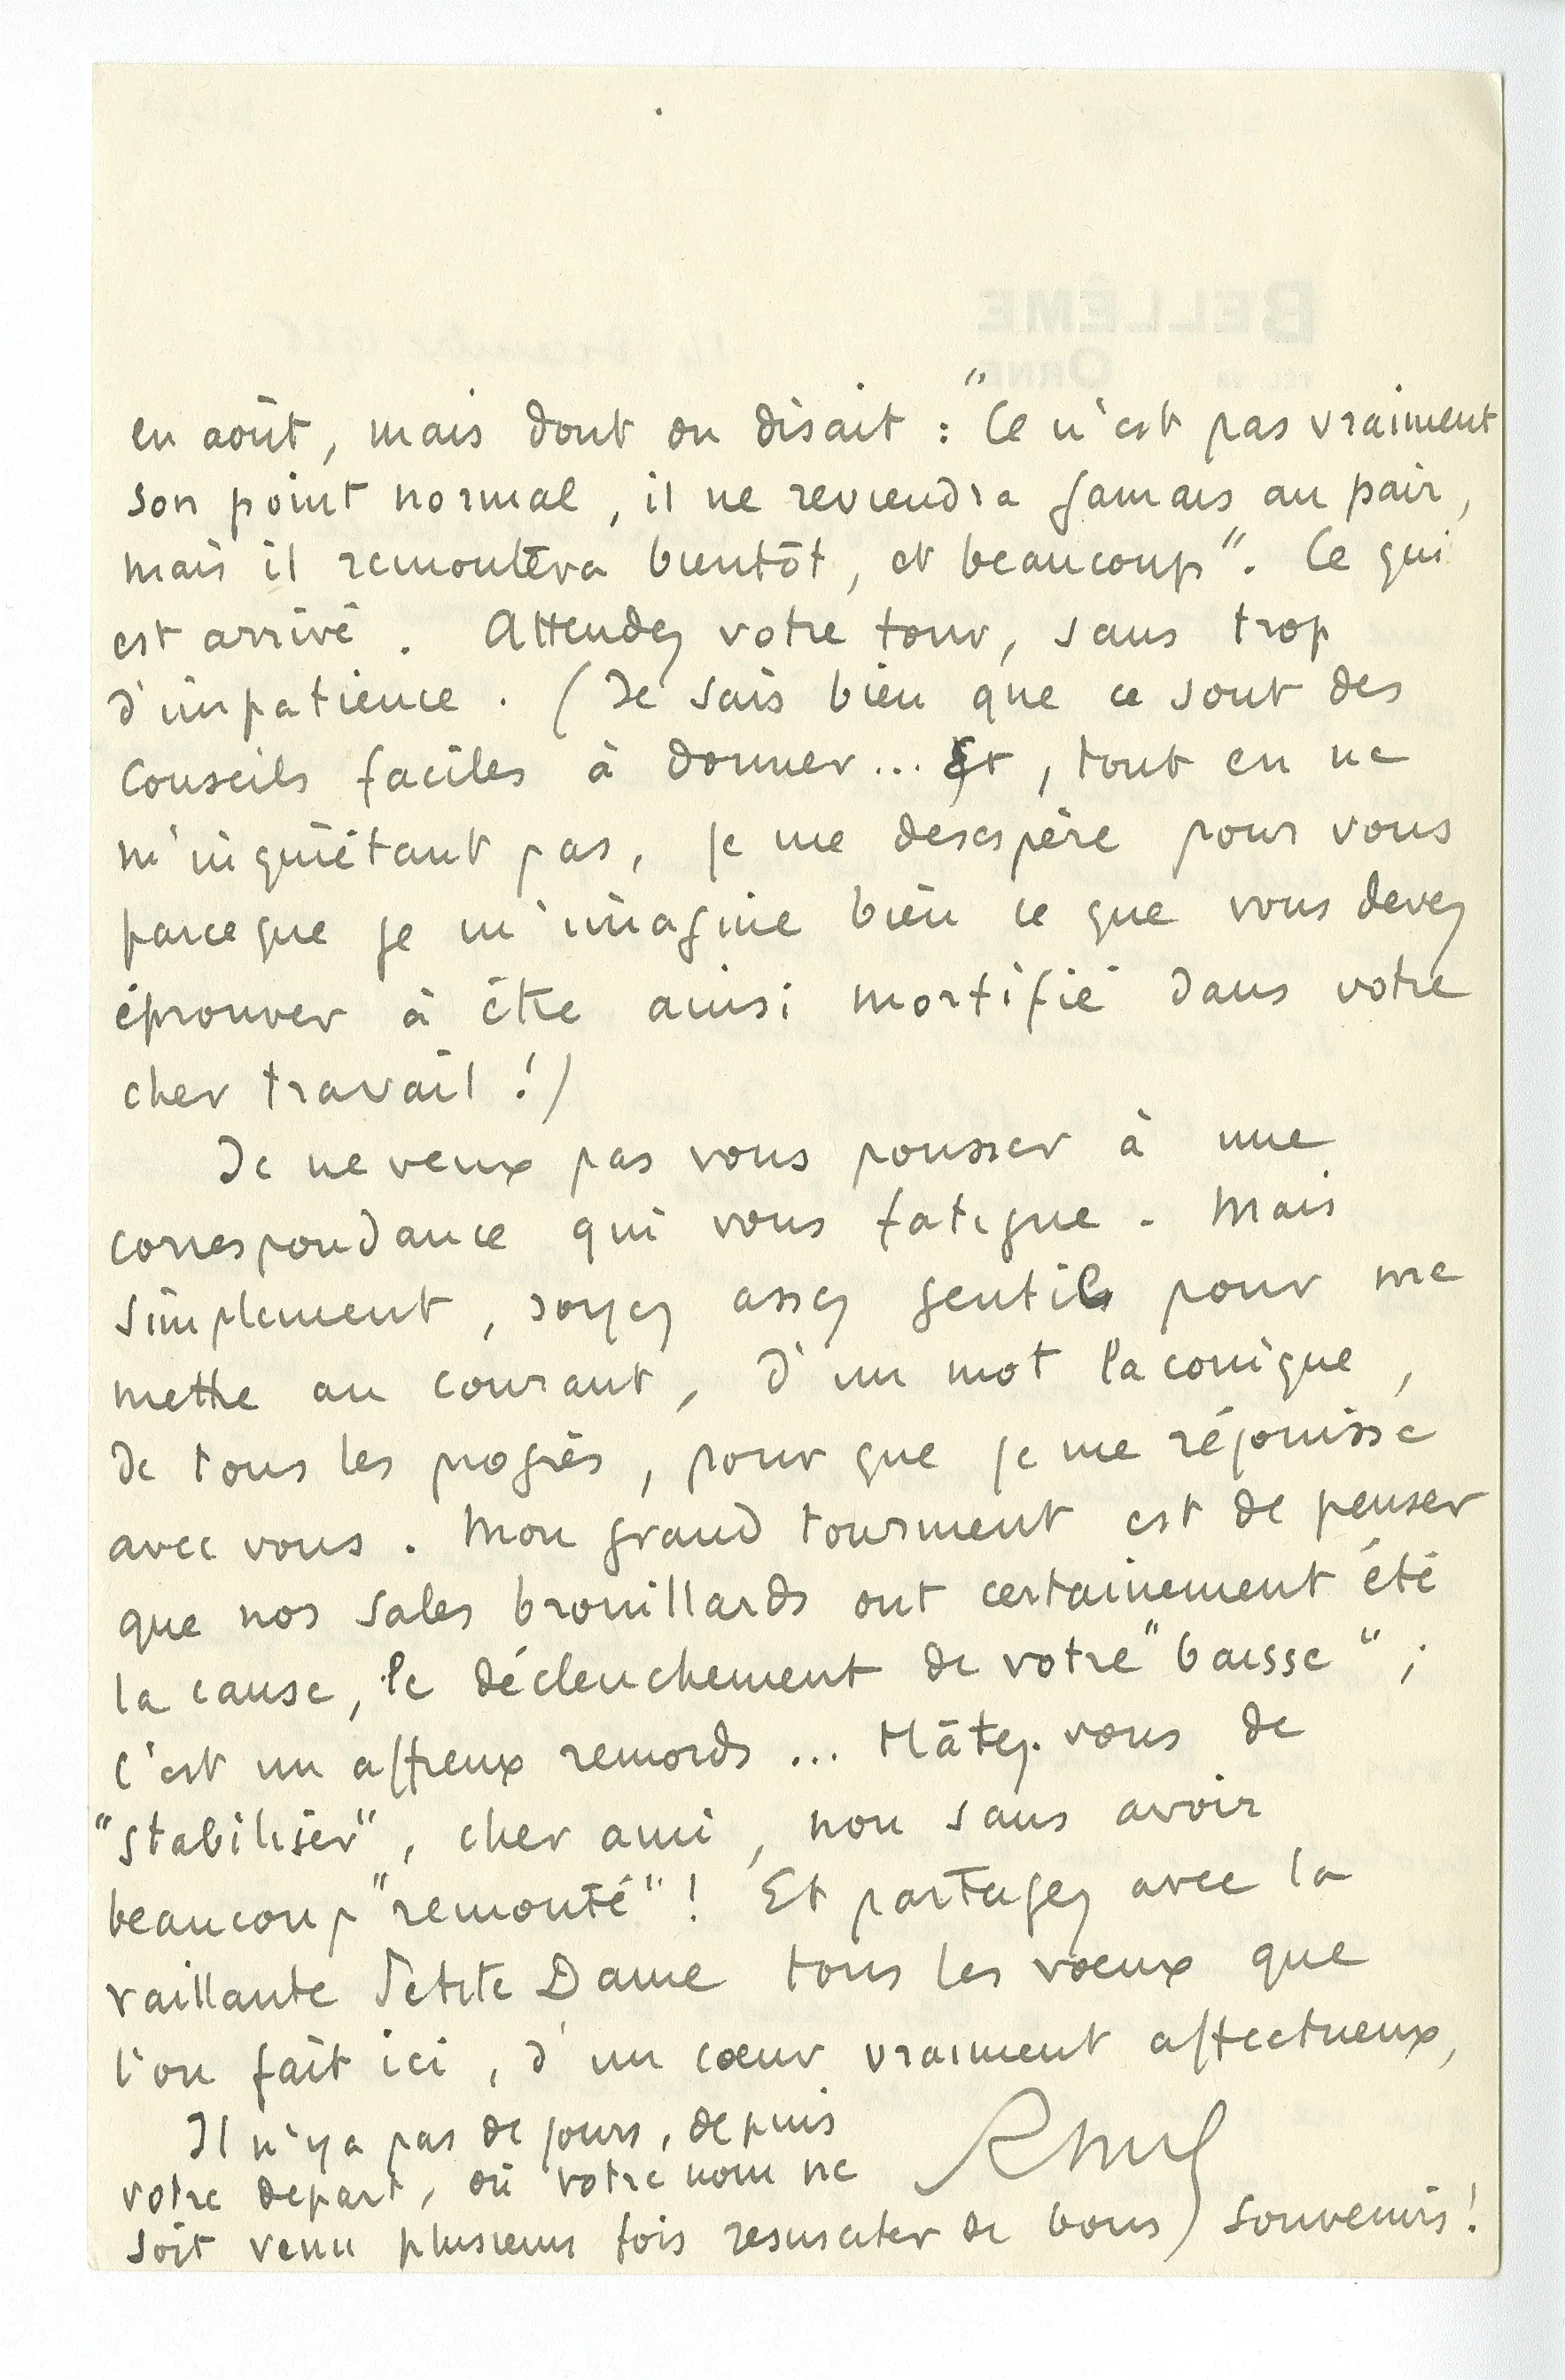 en août, mais dont on disait : "Ce n'est pas vraiment
son point normal, il ne reviendra jamais au pair,
mais il remontera bientôt, et beaucoup". Ce qui
est arrivé. Attendez votre tour, sans trop
d'impatience. (Je sais bien que ce sont des
conseils faciles à donner... Et, tout en ne
m'inquiétant pas, je me desespère pour vous
parceque je m'imagine bien ce que vous devez
éprouver à être ainsi mortifié dans votre
cher travail !)
Je ne veux pas vous pousser à une
correspondance qui vous fatigue. Mais
simplement, soyez assez gentil pour me
mettre au courant, d'un mot laconique,
de tous les progrès, pour que je me réjouisse
avec vous. Mon grand tourment est de penser
que nos sales brouillards ont certainement été
la cause, le déclenchement de votre "baisse" ;
c'est un affreux remords... Hâtez-vous de
"stabiliser", cher ami, non sans avoir
beaucoup "remonté" ! Et partagez avec la
vaillante Petite Dame tous les vœux que
l'on fait ici, d'un cœur vraiment affectueux,
Il n'y a pas de jours, depuis
votre depart, où votre nom ne
soit venu plusieurs fois resusciter de bons souvenirs !
BELLÊME
ORNE